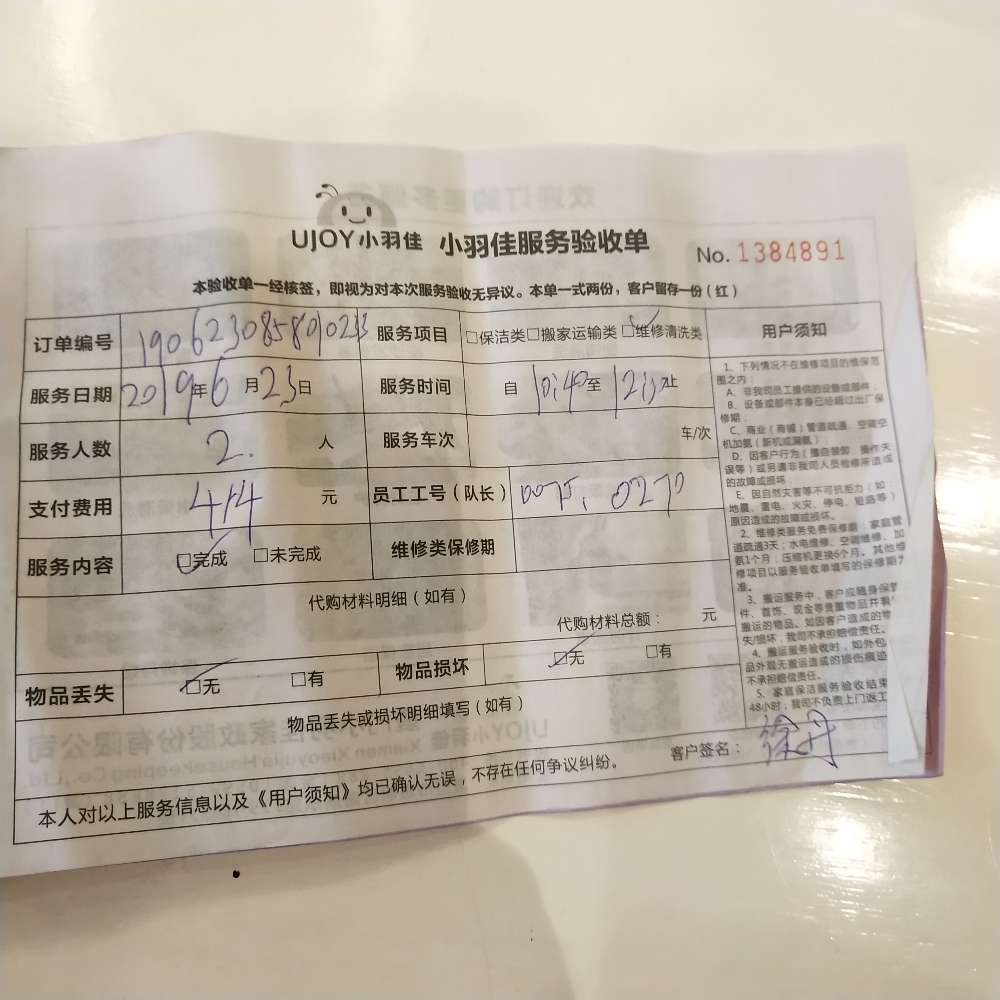 UJOY小羽佳 小羽佳服务验收单 No. 1384891
本验收单一经核签，即视为对本次服务验收无异议。本单一式两份，客户留存一份（红）
订单编号 服务项目 □保洁类□搬家运输类□维修清洗类
服务日期 2019年6月23日 服务时间 自 10:40至 止
服务人数 2. 人 服务车次 车/次
支付费用 414 元 员工工号（队长） 0270
服务内容 □完成 □未完成 维修类保修期
代购材料明细（如有）
代购材料总额： 元
物品丢失 □无 □有 物品损坏 □无 □有
物品丢失或损坏明细填写（如有）
客户签名：徐丹
本人对以上服务信息以及《用户须知》均已确认无误，不存在任何争议纠纷。
用户须知
1、下列情况不在维修项目的维保范
围之内：
A、非我司员工提供的设备或部件；
B、设备或部件本身已经超过出厂保
修期；
C、商业（商铺）管道疏通、空调空
机加氨（新机或漏氨）；
D、因客户行为（擅自装卸、操作失
误等）或另请非我司人员检修所造成
的故障或损坏；
E、因自然灾害等不可抗拒力（如：
地震、雷电、火灾、停电、短路等）
原因造成的故障或损坏。
2、维修类服务免费保修期：家庭管
道疏通3天；水电维修、空调维修、加
氨1个月；压缩机更换6个月。其他维
修项目以服务验收单填写的保修期为
准。
3、搬运服务中，客户应随身保管
件、首饰、现金等贵重物品并
搬运的物品。如因客户造成的物
失/损坏，我司不承担赔偿责任。
4、搬运服务验收时，如外包
品外观无搬运造成的损伤痕迹
不承担赔偿责任。
5、家庭保洁服务验收结束
48小时，我司不负责上门返工